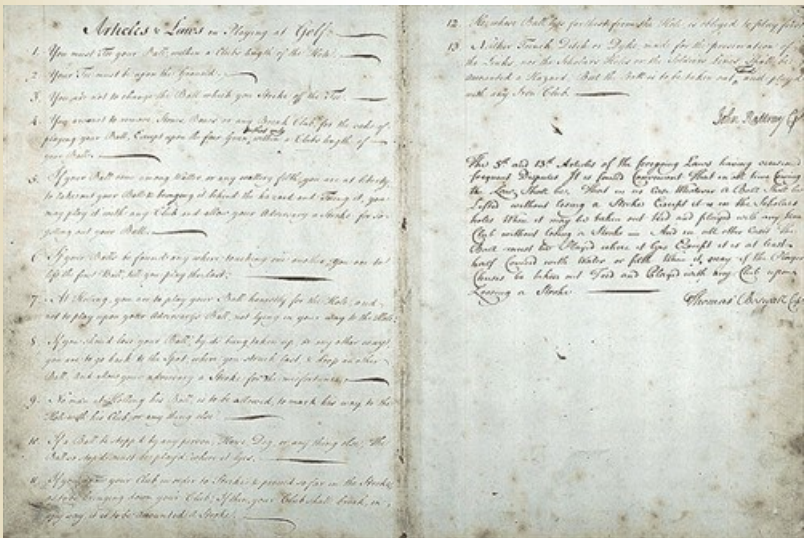 Articles & Laws in Playing at Golf.
1. You must Tee your Ball, within a Clubs length of the Hole.
2. Your Tee must be upon the Ground.
3. You are not to change the Ball which you Strike off the Tee.
4. You are not to remove Stones, Bones or any Break Club, for the sake of
playing your Ball, Except upon the fair Green, within a Clubs length of
your Ball.
5. If your Ball come among Water, or any watery filth, you are at liberty
to take out your Ball & bringing it behind the hazard and Teeing it, you
may play it with any Club and allow your Adversary a Stroke for so
getting out your Ball.
6. If your Balls be found any where touching one another, you are to
lift the first Ball, till you play the last.
7. At Holling, you are to play your Ball honestly for the Hole, and
not to play upon your Adversary's Ball, not lying in your way to the Hole.
8. If you should lose your Ball, by its being taken up, or any other way,
you are to go back to the Spot, where you struck last, & drop another
Ball, And allow your adversary a Stroke for the misfortune.
9. No man at Holling his Ball, is to be allowed, to mark his way to the
Hole with his Club, or any thing else.
10. If a Ball be stopp'd by any person, Horse, Dog or any thing else, The
Ball so stop'd must be play'd where it lyes.
11. If you draw your Club in order to Strike & proceed so far in the Stroke
as to be bringing down your Club; If then, your Club shall break, in
any way, it is to be accounted a Stroke.
12. He whose Ball lyes farthest from the Hole is obliged to play first.
13. Neither Trench, Ditch or Dyke, made for the preservation of
the Links, nor the Scholars Holes or the Soldiers Lines, Shall be
accounted a Hazard. But the Ball is to be taken out, and play'd
with any Iron Club.
John Rattray
The 5th and 13th Articles of the foregoing Laws having occasion'd
frequent Disputes It is found Convenient That in all time Coming
the Law Shall be, That in no case Whatever a Ball Shall be
Lifted without losing a Stroke Except it is in the Scholars
holes When it may be taken out teed and played with any Iron
Club without losing a Stroke And in all other Cases The
Ball must be Played where it lyes Except it is at least
half Covered with Water or filth When it may if the Player
Chuses be taken out Teed and Played with any Club upon
Loosing a Stroke
Thomas Boswall